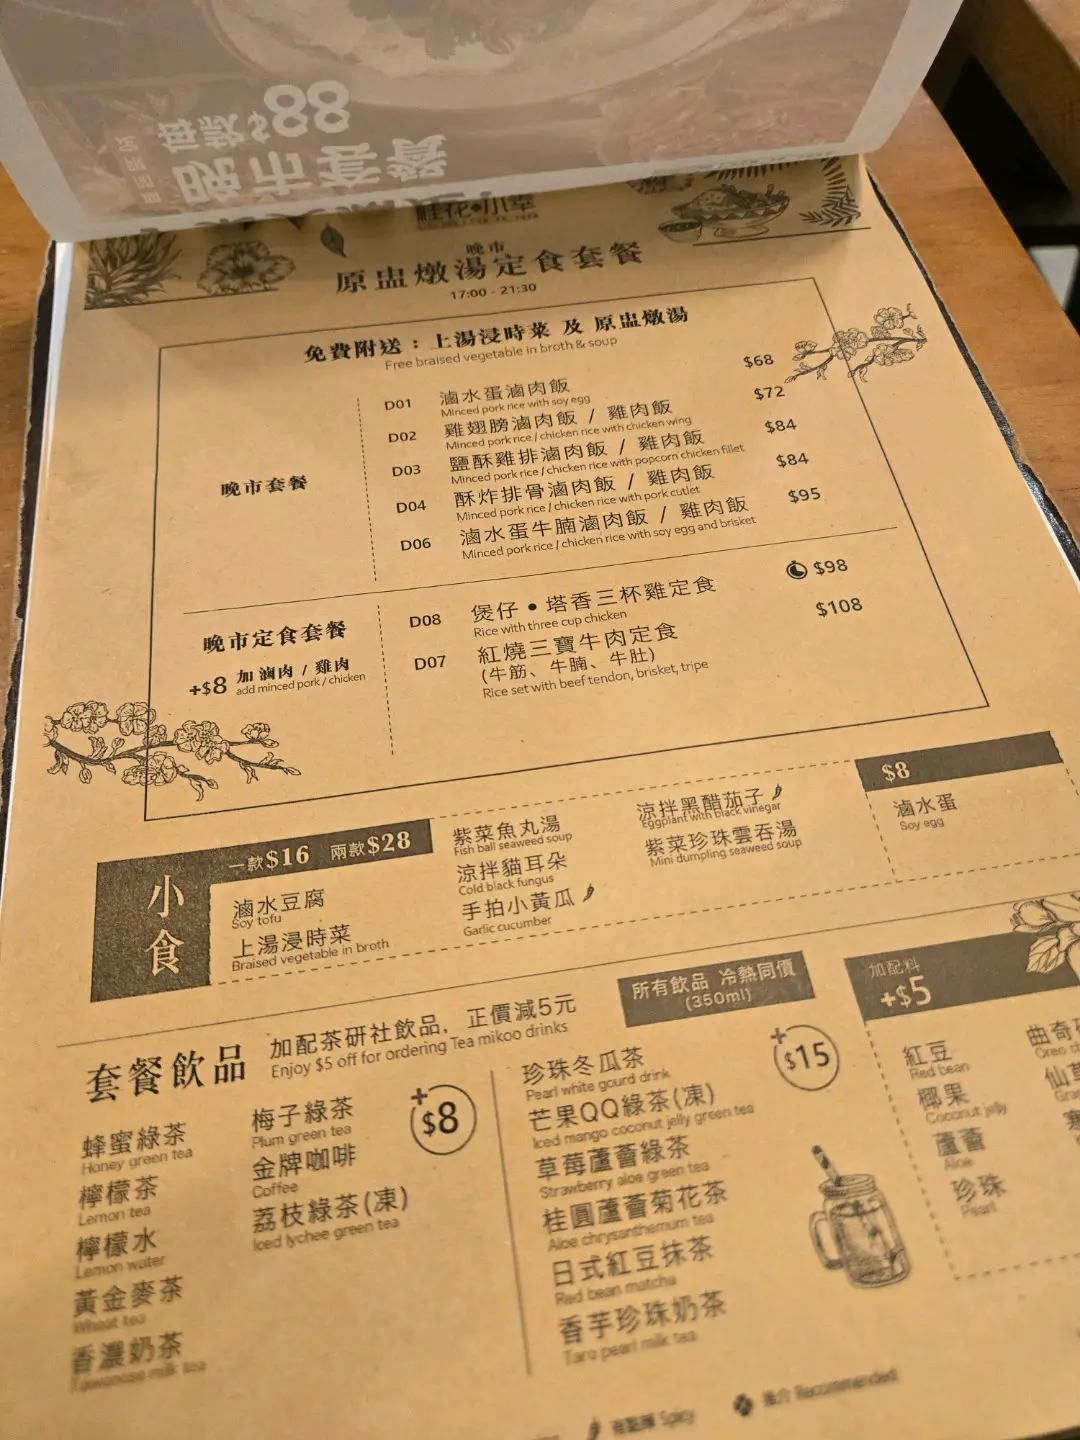 每款$88
晚市套餐
桂花小幸
晚市
原盅燉湯定食套餐
17:00 - 21:30
免費附送：上湯浸時菜 及 原盅燉湯
Free braised vegetable in broth & soup
晚市套餐
D01 滷水蛋滷肉飯 $68
Minced pork rice with soy egg
D02 雞翅膀滷肉飯 / 雞肉飯 $72
Minced pork rice / chicken rice with chicken wing
D03 鹽酥雞排滷肉飯 / 雞肉飯 $84
Minced pork rice / chicken rice with popcorn chicken fillet
D04 酥炸排骨滷肉飯 / 雞肉飯 $84
Minced pork rice / chicken rice with pork cutlet
D06 滷水蛋牛腩滷肉飯 / 雞肉飯 $95
Minced pork rice / chicken rice with soy egg and brisket
晚市定食套餐
+$8 加滷肉 / 雞肉
add minced pork / chicken
D08 煲仔 • 塔香三杯雞定食 $98
Rice with three cup chicken
D07 紅燒三寶牛肉定食 $108
(牛筋、牛腩、牛肚)
Rice set with beef tendon, brisket, tripe
小食
一款$16 兩款$28
滷水豆腐
Soy tofu
上湯浸時菜
Braised vegetable in broth
紫菜魚丸湯
Fish ball seaweed soup
涼拌貓耳朵
Cold black fungus
手拍小黃瓜
Garlic cucumber
涼拌黑醋茄子
Eggplant with black vinegar
紫菜珍珠雲吞湯
Mini dumpling seaweed soup
$8
滷水蛋
Soy egg
套餐飲品
加配茶研社飲品，正價減5元
Enjoy $5 off for ordering Tea mikoo drinks
所有飲品 冷熱同價
(350ml)
+$8
蜂蜜綠茶
Honey green tea
檸檬茶
Lemon tea
檸檬水
Lemon water
黃金麥茶
Wheat tea
香濃奶茶
Taiwanese milk tea
梅子綠茶
Plum green tea
金牌咖啡
Coffee
荔枝綠茶(凍)
Iced lychee green tea
+$15
珍珠冬瓜茶
Pearl white gourd drink
芒果QQ綠茶(凍)
Iced mango coconut jelly green tea
草莓蘆薈綠茶
Strawberry aloe green tea
桂圓蘆薈菊花茶
Aloe chrysanthemum tea
日式紅豆抹茶
Red bean matcha
香芋珍珠奶茶
Taro pearl milk tea
加配料
+$5
紅豆
Red bean
椰果
Coconut jelly
蘆薈
Aloe
珍珠
Pearl
曲奇
Oreo
仙草
Spicy
推介 Recommended